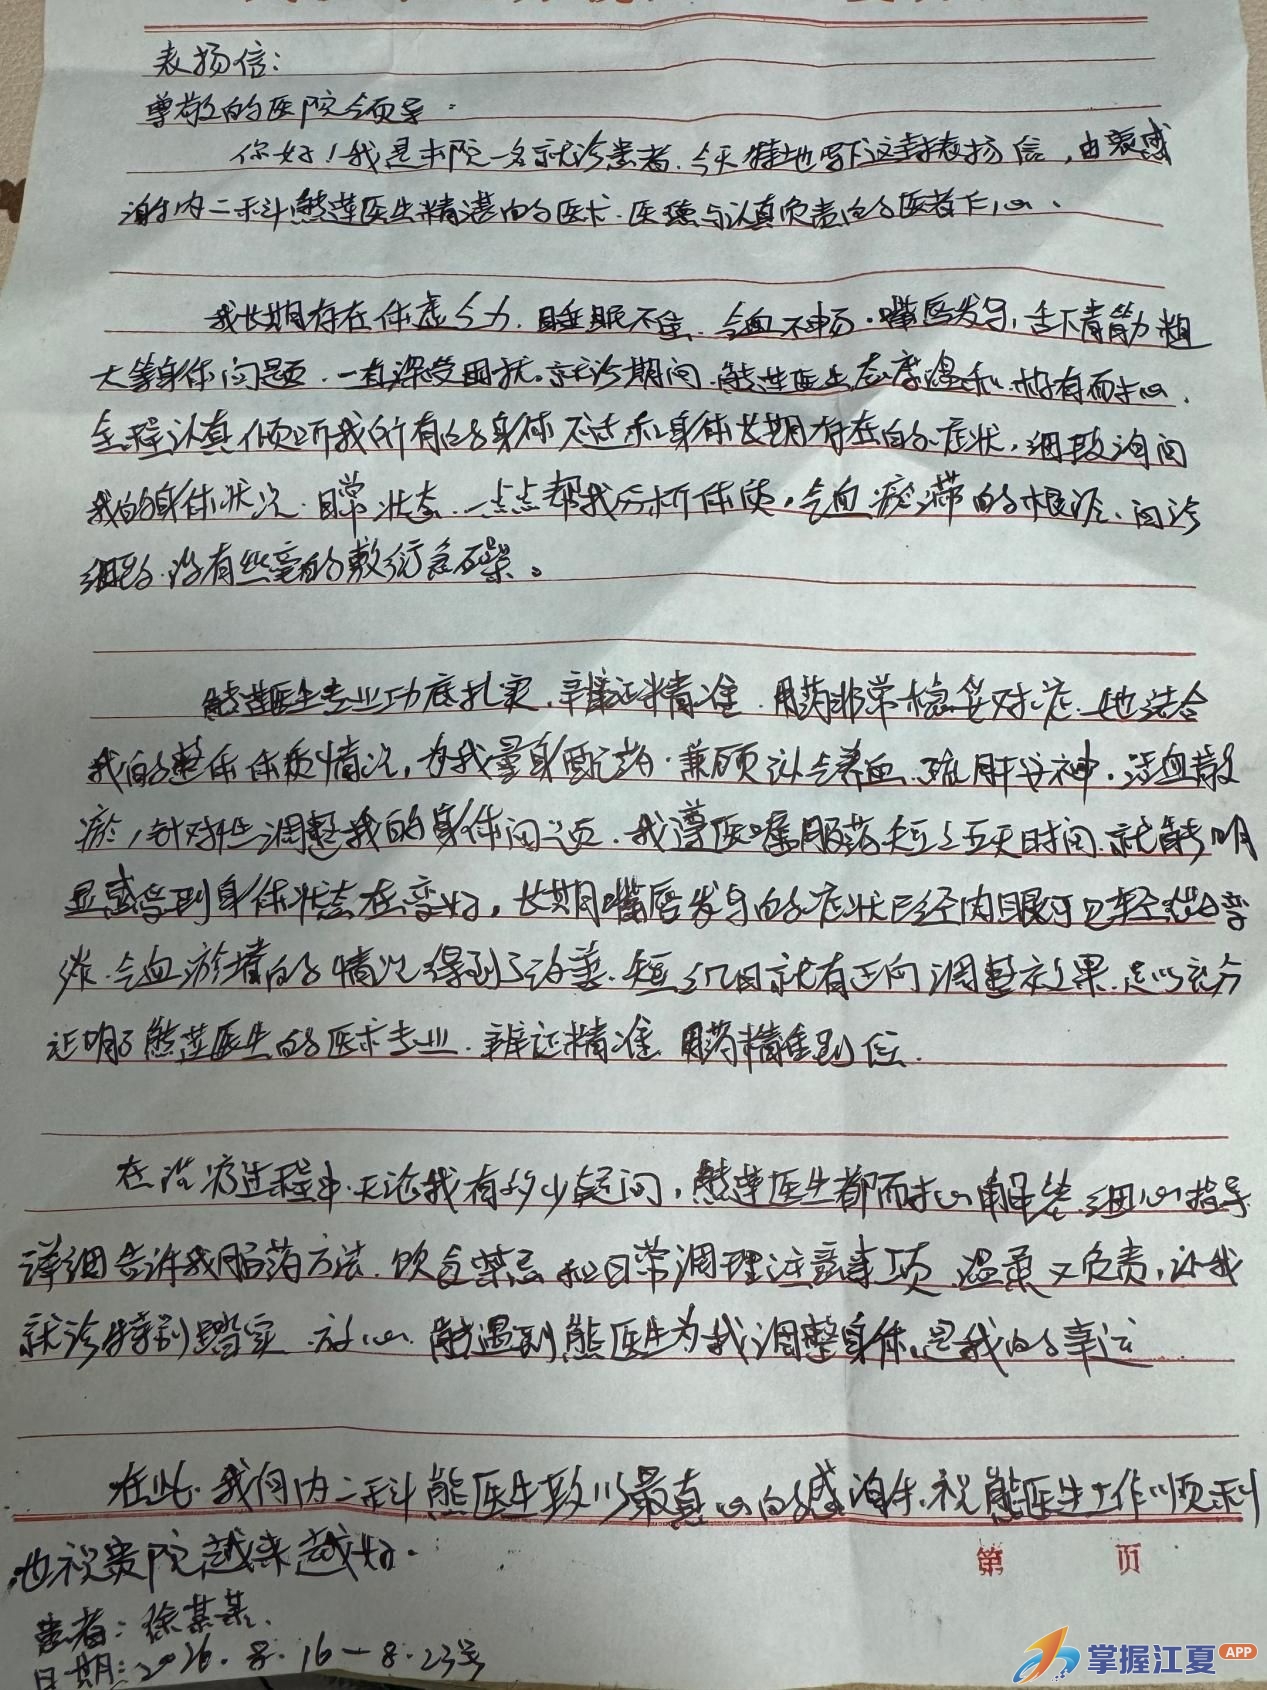 表扬信：
尊敬的医院领导：
你好！我是本院一名就诊患者.今天特地写下这封表扬信，由衷感
谢内二科熊莲医生精湛的医术.医德与认真负责的医者仁心.
我长期存在体虚乏力.睡眠不佳、气血不畅.嘴唇发乌，舌下青筋粗
大等身体问题.一直深受困扰。就诊期间.熊莲医生态度温和.极有耐心.
全程认真倾听我所有的身体不适和身体长期存在的症状，细致询问
我的身体状况.日常状态.一点点帮我分析体质，气血瘀滞的根源、问诊
细致.没有丝毫的敷衍急躁。
熊莲医生专业功底扎实.辨证精准.用药非常稳妥对症.她结合
我的整体体质情况，为我量身配药.兼顾补气养血.疏肝安神.活血散
瘀，针对性调整我的身体问题.我遵医嘱服药短短五天时间.就能明
显感受到身体状态在变好，长期嘴唇发乌的症状已经肉眼可见轻微变
淡.气血瘀堵的情况得到了改善.短短几日就有正向调整效果.足以充分
证明了熊莲医生的医术专业.辨证精准.用药精准到位.
在治疗过程中.无论我有多少疑问，熊莲医生都耐心解答.细心指导
详细告诉我服药方法.饮食禁忌和日常调理注意事项.温柔又负责，让我
就诊特别踏实.放心.能遇到熊医生为我调整身体，是我的幸运
在此.我向内二科熊医生致以最真心的感谢.祝熊医生工作顺利
也祝贵院越来越好.
第 页
患者：徐某某.
日期：2026.8.16-8.23号
掌握江夏APP